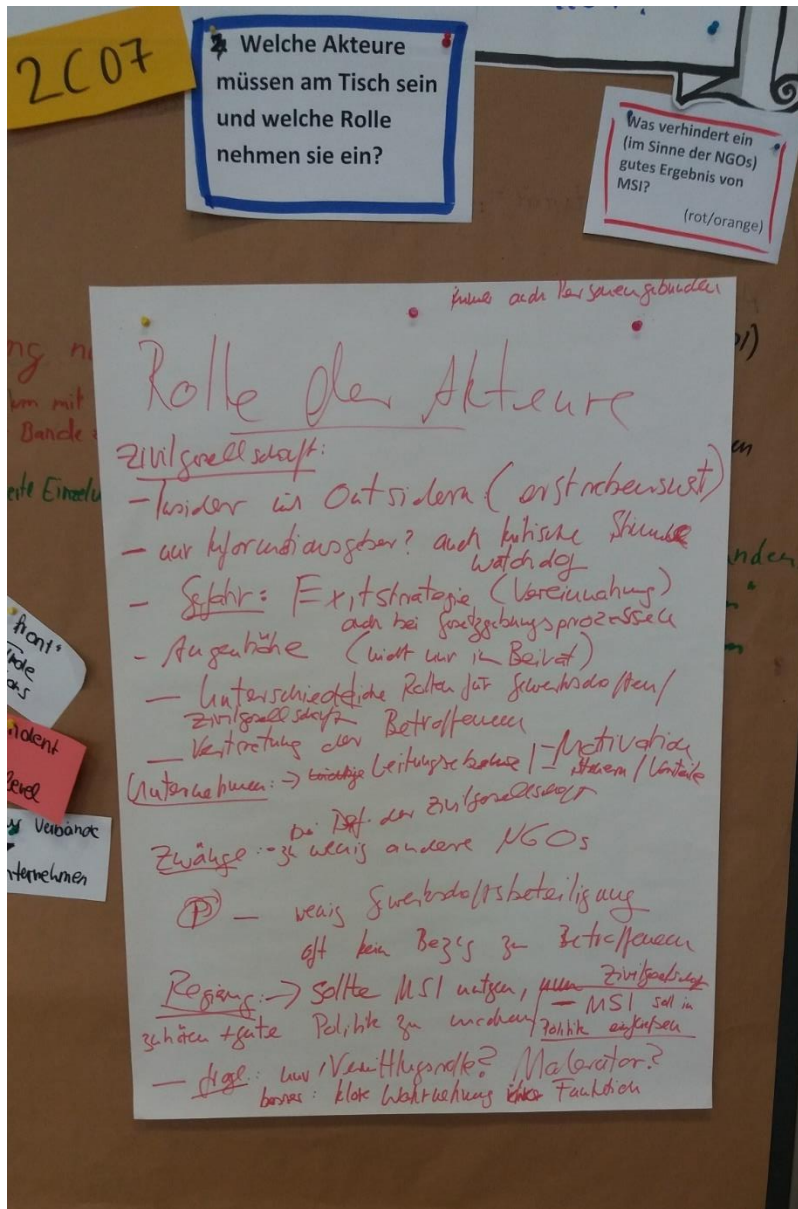 2C07
Welche Akteure
müssen am Tisch sein
und welche Rolle
nehmen sie ein?
Was verhindert ein
(im Sinne der NGOs)
gutes Ergebnis von
MSI?
(rot/orange)
immer auch Personengebunden
Rolle der Akteure
Zivilgesellschaft:
- Insider in Outsidern (erstrebenswert)
- nur Informationsgeber? auch kritische Stimme
watchdog
- Gefahr: Exitstrategie (Vereinnahmung)
auch bei Gesetzgebungsprozessen
- Augenhöhe (nicht nur in Beirat)
- Unterschiedliche Rollen für Gewerkschaften/
Zivilgesellschaft Betroffenen
- Vertretung der
Unternehmen: → Leitungsebene / - Motivation
/ Vorteile
bei Def. der Zivilgesellschaft
Zwänge: - zu wenig andere NGOs
(P) - wenig Gewerkschaftsbeteiligung
oft kein Bezug zu Betroffenen
Regierung: → sollte MSI nutzen, Zivilgesellschaft
- MSI soll in
zuhören + gute Politik zu machen / Politik einfließen
- Frage: nur Vermittlungsrolle? Moderator?
besser: klare Wahrnehmung ihrer Funktion
front"
ident
level
Verbände
nternehmen